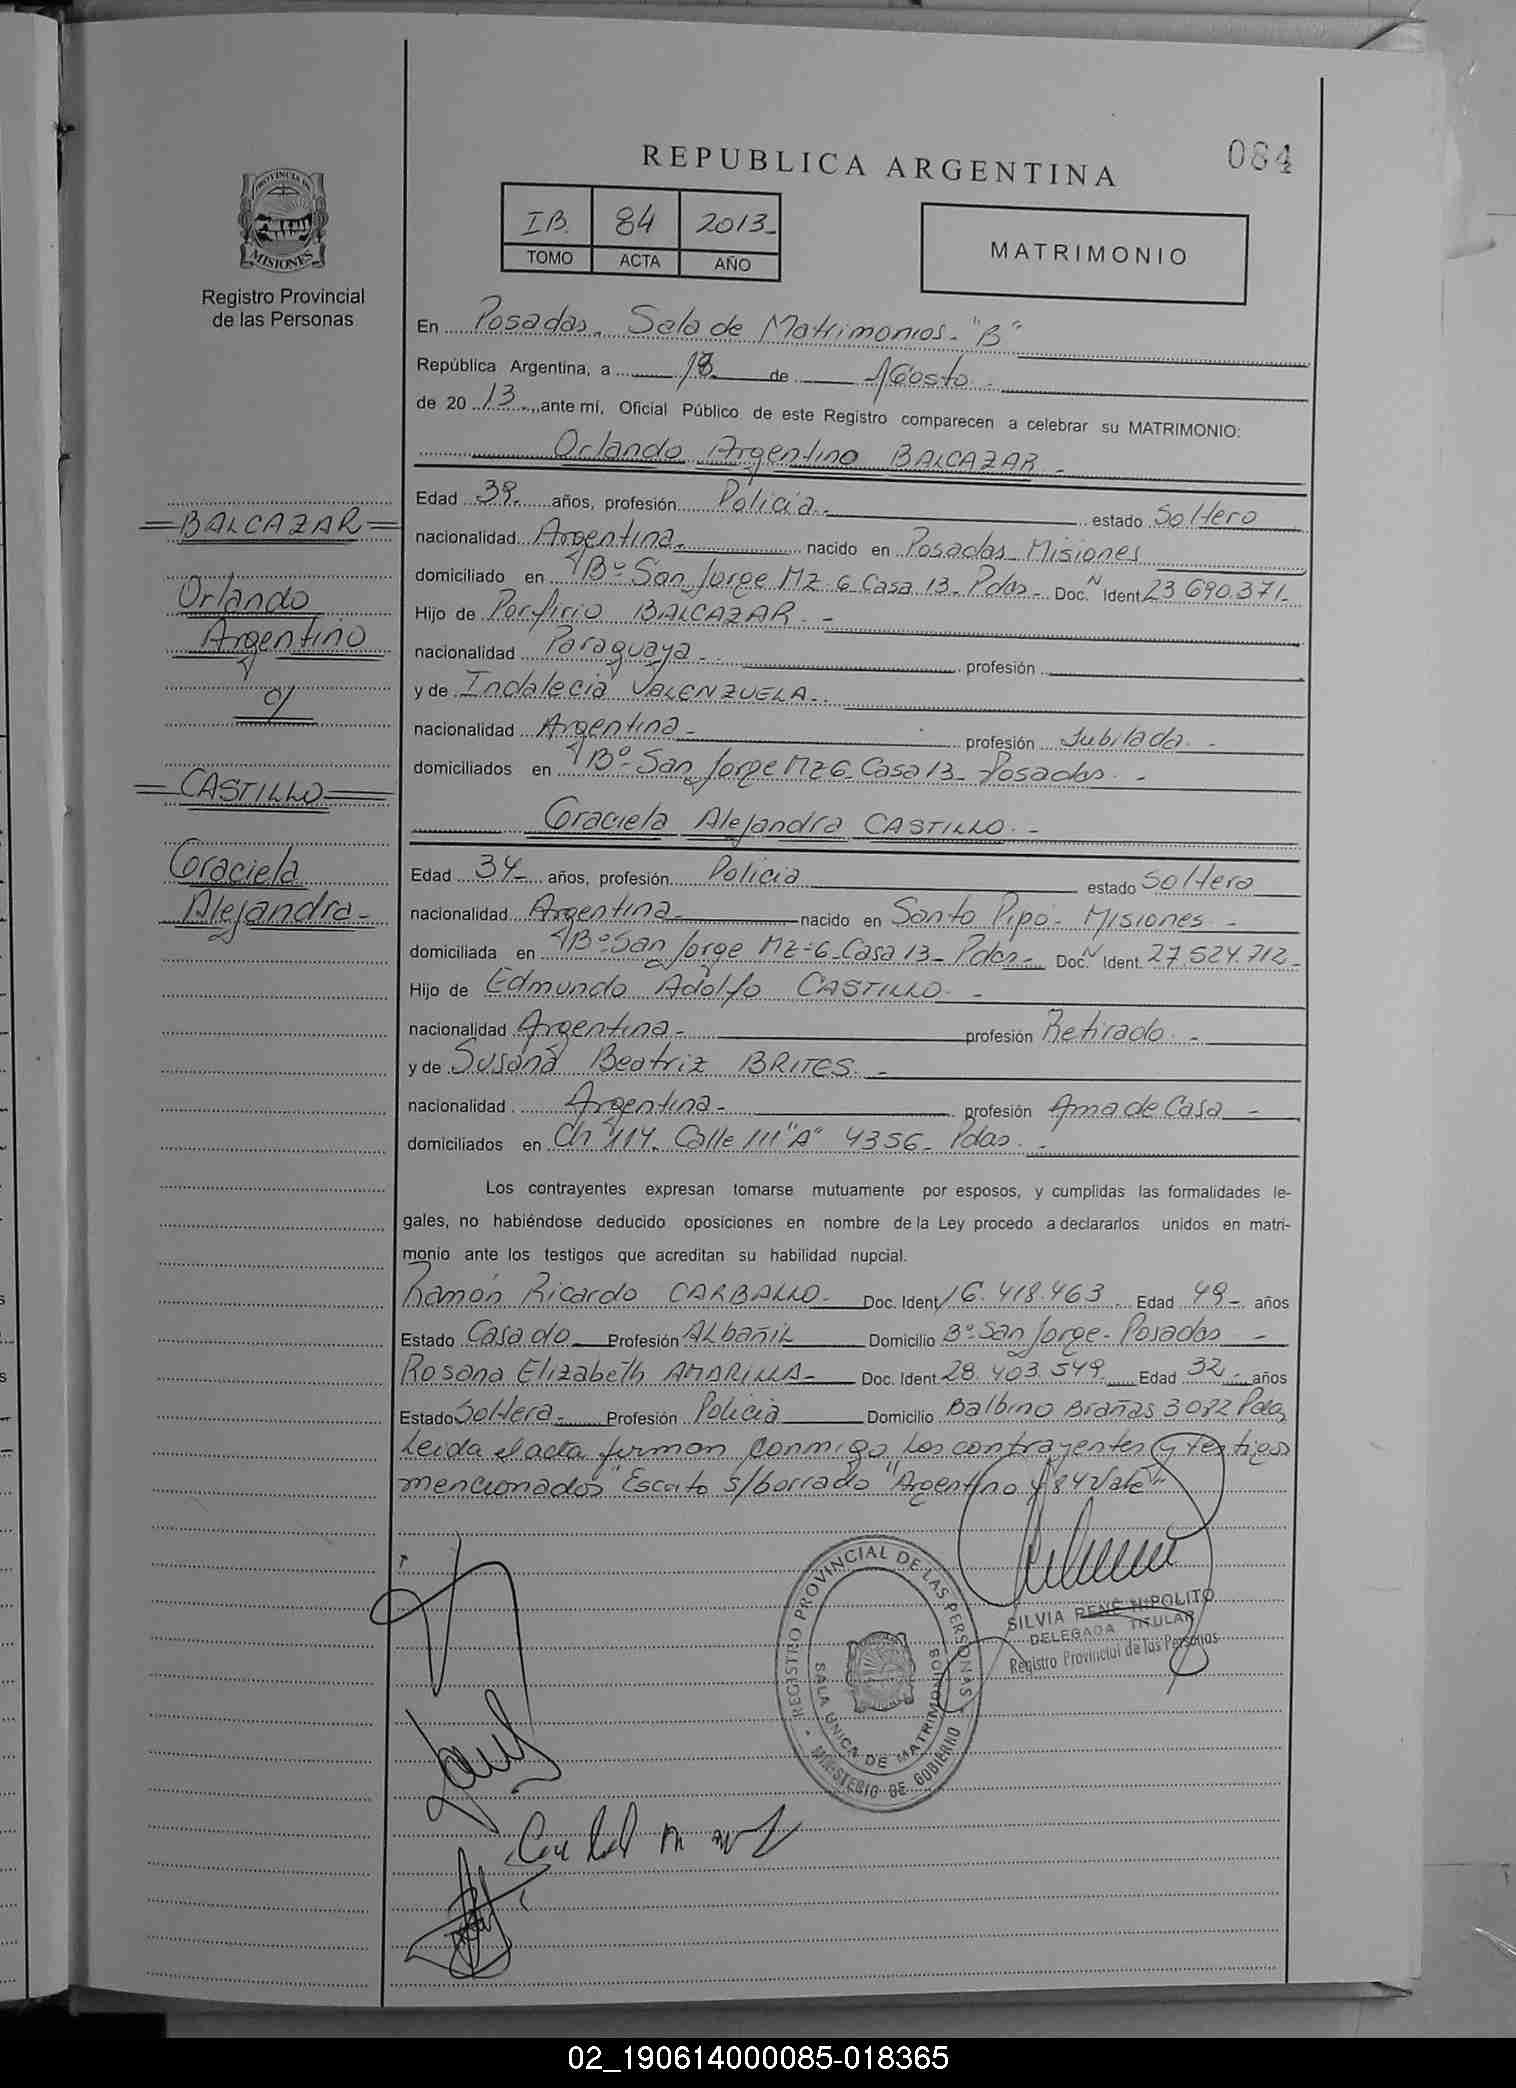 084
REPUBLICA ARGENTINA
PROVINCIA DE
MISIONES
Registro Provincial
de las Personas
IB. 84 2013-
TOMO ACTA AÑO
MATRIMONIO
En Posadas. Sala de Matrimonios - "B"
República Argentina, a de Agosto -
de 20 13 ante mí, Oficial Público de este Registro comparecen a celebrar su MATRIMONIO:
Orlando Argentino BALCAZAR -
Edad 39 años, profesión Policia - estado Soltero
nacionalidad Argentina - nacido en Posadas - Misiones
domiciliado en Bº San Jorge Mz 6 Casa 13 - Pdas - Doc. N Ident 23 690.371-
Hijo de Porfirio BALCAZAR. -
nacionalidad Paraguaya - profesión
y de Indalecia VALENZUELA -
nacionalidad Argentina - profesión Jubilada. -
domiciliados en Bº San Jorge Mz 6 - Casa 13 - Posadas. -
Graciela Alejandra CASTILLO. -
Edad 34 - años, profesión Policia estado Soltera
nacionalidad Argentina - nacido en Santo Pipo - Misiones. -
domiciliada en Bº San Jorge Mz - 6 - Casa 13 - Pdas - Doc. N Ident. 27.524.712 -
Hijo de Edmundo Adolfo CASTILLO. -
nacionalidad Argentina - profesión Retirado. -
y de Susana Beatriz BRITES. -
nacionalidad Argentina - profesión Ama de Casa -
domiciliados en Ch 114. Calle 111 "A" 4356 - Pdas. -
Los contrayentes expresan tomarse mutuamente por esposos, y cumplidas las formalidades le-
gales, no habiéndose deducido oposiciones en nombre de la Ley procedo a declararlos unidos en matri-
monio ante los testigos que acreditan su habilidad nupcial.
Ramón Ricardo CARBALLO - Doc. Ident 16.418.463 Edad 49 - años
Estado Casado Profesión Albañil Domicilio Bº San Jorge - Posadas -
Rosana Elizabeth AMARILLA - Doc. Ident 28.403.549 Edad 32 - años
Estado Soltera - Profesión Policia Domicilio Balbino Brañas 3072 Pdas
Leida el acta firman conmigo los contrayentes y testigos
mencionados "Escrito s/borrado "Argentino y 84 Vale"-
= BALCAZAR =
Orlando
Argentino
c/
= CASTILLO =
Graciela
Alejandra -
REGISTRO PROVINCIAL DE LAS PERSONAS
SALA UNICA DE MATRIMONIOS
MINISTERIO DE GOBIERNO
SILVIA RENÉ HIPOLITO
DELEGADA TITULAR
Registro Provincial de las Personas
02_190614000085-018365